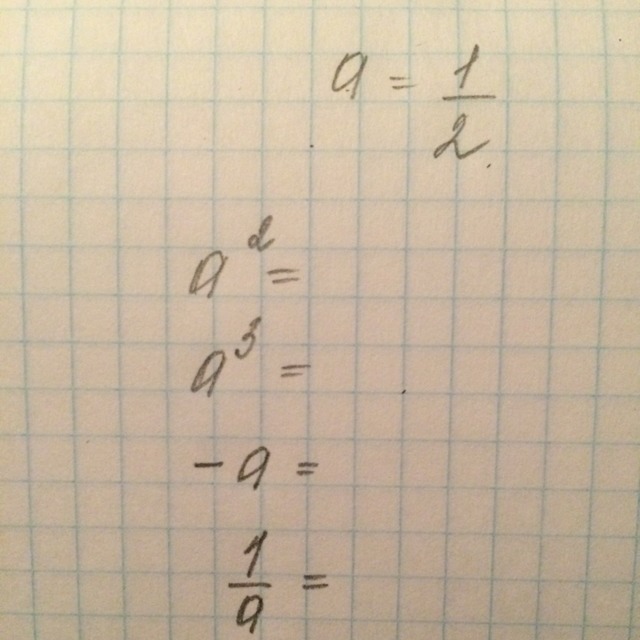 a = 1/2
a² =
a³ =
- a =
1/a =